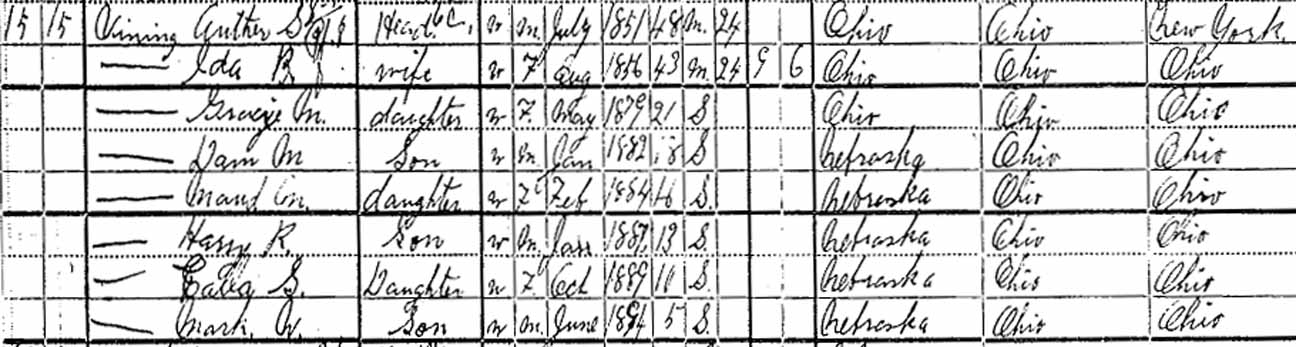 15 15 Vining Auther S Head W M July 1851 48 M 24 Ohio Ohio New York
— Ida B wife W F Aug 1856 43 M 24 9 6 Ohio Ohio Ohio
— M. daughter W F May 1879 21 S Ohio Ohio Ohio
— M Son W M Jan 1882 18 S Nebraska Ohio Ohio
— Maud M. daughter W F Feb 1884 16 S Nebraska Ohio Ohio
— Harry R. Son W M Jan 1887 13 S. Nebraska Ohio Ohio
— S. Daughter W F Oct 1889 10 S. Nebraska Ohio Ohio
— Mark W. Son W M June 1894 5 S. Nebraska Ohio Ohio